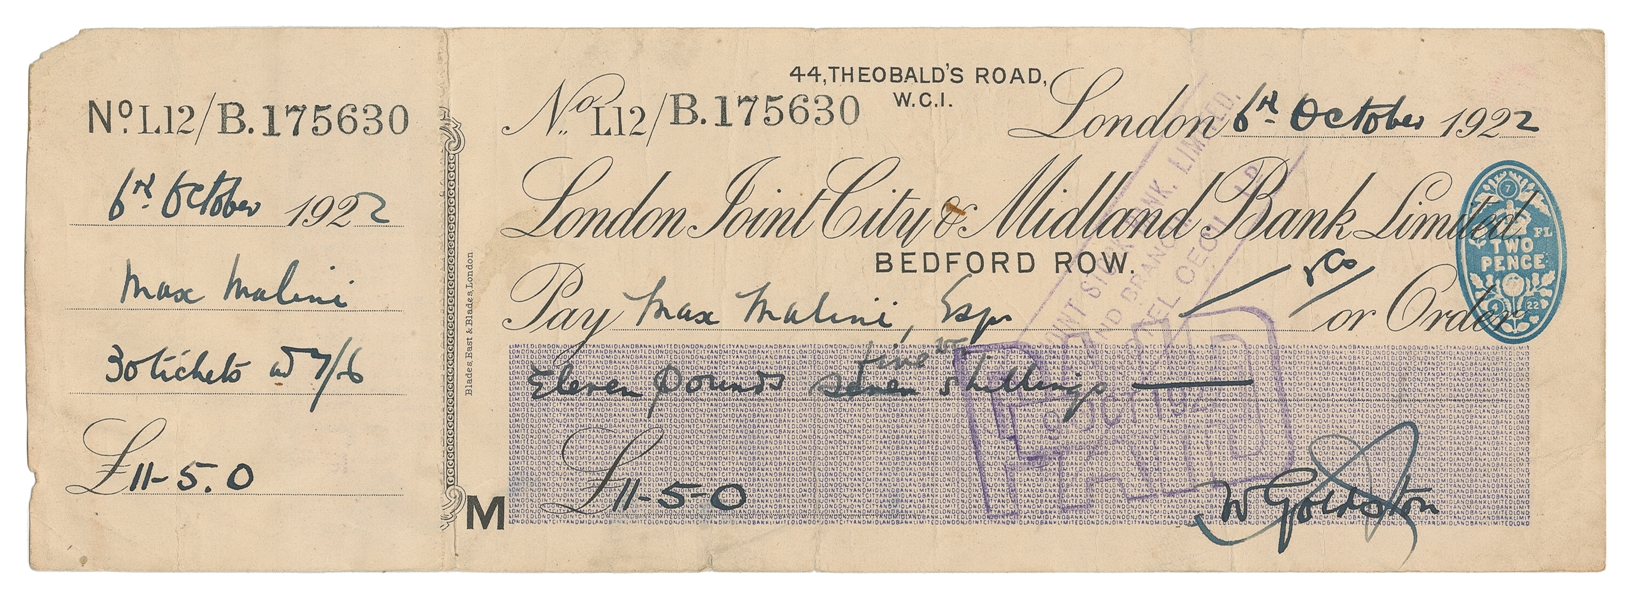 No. L12/B.175630
6th October 1922
Max Malini
30 tickets at 7/6
£11-5.0
Blades, East & Blades, London
44, THEOBALD'S ROAD,
W.C.1.
No. L12/B.175630
London 6th October 1922
London Joint City & Midland Bank Limited
BEDFORD ROW.
TWO
PENCE
Pay Max Malini, Esq. & Co or Order
five
Eleven pounds seven shillings
£11-5-0
M
PAID
W Goldston